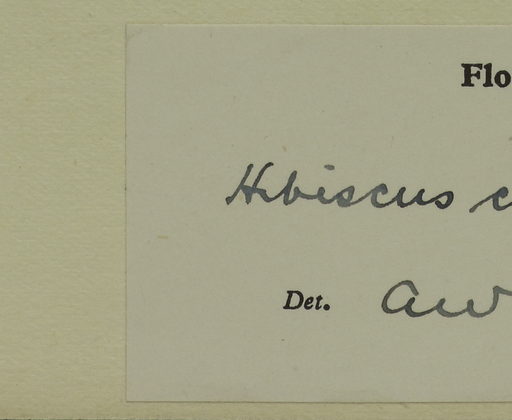 Flo
Hibiscus c
Det. AW